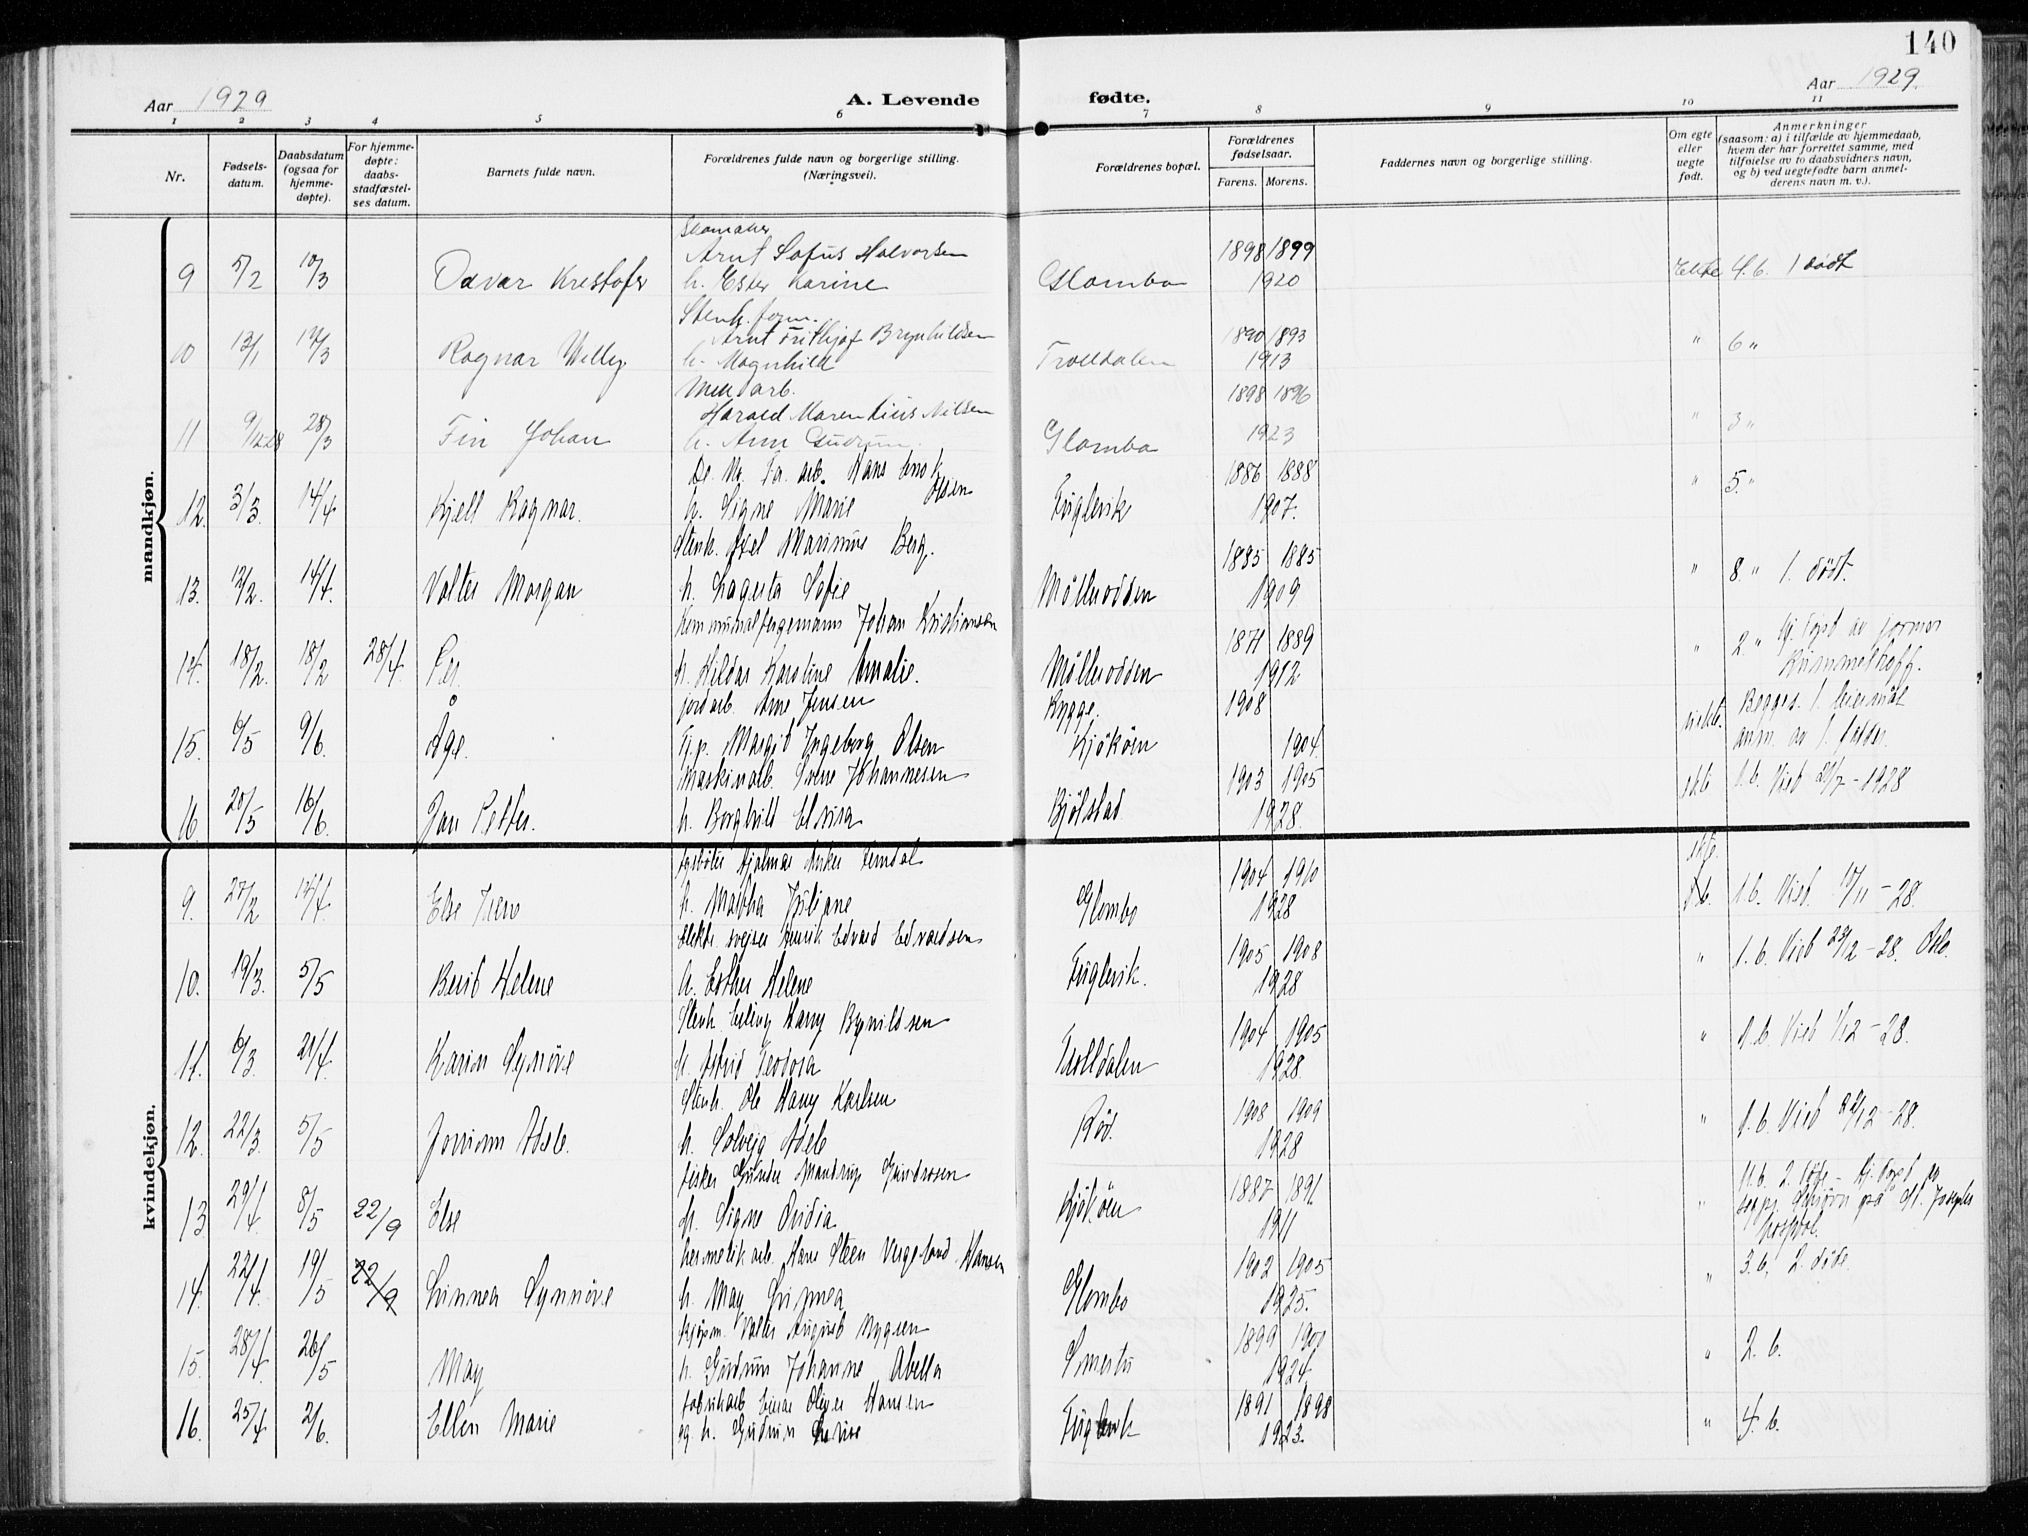 140
Aar 1929 A. Levende fødte. Aar 1929.
1 2 3 4 5 6 7 8 9 10 11
Nr. Fødsels-datum. Daabsdatum (ogsaa for hjemme-døpte). For hjemme-døpte: daabs-stadfæstel-ses datum. Barnets fulde navn. Forældrenes fulde navn og borgerlige stilling. (Næringsvei). Forældrenes bopæl. Forældrenes fødselsaar. Farens. Morens. Faddernes navn og borgerlige stilling. Om egte eller uegte født. Anmerkninger (saasom: a) i tilfælde av hjemmedaab, hvem der har forrettet samme, med tilføielse av to daabsvidners navn, og b) ved uegtefødte barn anmel-derens navn m. v.).
mandkjøn.
Skomaker
Arnt Sofus Halvorsen 1898 1899
9 5/2 10/3 Odvar Kristofer h. Ester Karine Glombo 1920 Ekte 4. b. 1 død
Stenh. form.
Arnt Frithjof Brynhildsen 1890 1893
10 13/1 17/3 Ragnar Willy h. Magnhild Trolldalen 1913 " 6 "
arb. 1898 1896
Harald Marentius Nilsen
11 9/12 28 28/3 Fin Johan h. Gudrun Glombo 1923 " 3 "
arb. Hans Enok Olsen 1886 1888
12. 3/3. 14/4 Kjell Ragnar. h. Signe Marie Fuglevik 1907. " 5. "
Stenh. Axel Marinius Berg. 1885 1885
13. 12/2. 14/4. Valter Morgan h. Lagerta Sofie Møllerodden 1909 " 8. " 1. død.
Johan Kristiansen 1871 1889
14. 18/2. 18/2 28/4. Per. h. Hildar Karoline Amalie. Møllerodden 1912 " 2 " Hj. døpt av jormor
jordarb. Arne Jensen Rygge. 1908 Begges 1. leiermål
15. 6/5 9/6. Åge. Tj.p. Margit Ingeborg Olsen Kjökøen 1904. anm. av
Maskinarb. Johannesen 1903 1905
16 20/5 16/6. Jan Petter. h. Borghild Elvira Bjølstad 1928. ekte 1. b. Vied 21/7 - 1928
kvindekjøn.
Hjalmar 1904 1910 ekte
9. 27/2 14/4. Else h. Martha Juliane Glombo 1928 1. b. Vied. 17/11 - 28.
Elektr. svejser Henrik Edvard Edvardsen 1905 1908
10. 19/3. 5/5 Berit Helene h. Esther Helene Fuglevik. 1928 " 1. b. Vied 29/12 - 28. Oslo.
Stenh. Erling Harry Brynildsen 1904 1905
11. 6/3. 21/4. Karin Synnöve h. Astrid Teodora Trolldalen 1928. " 1. b. Vied 1/12 - 28.
Stenh. Ole Harry Karlsen 1908 1909
12. 22/3. 5/5 h. Solveig Adele Röd. 1928 " 1. b. Vied 22/12 - 28.
Fisker Gunder Mandrup Gundersen 1887 1891 11. b. 2. döde - Hj. døpt
13 29/4 8/5 22/9 Else h. Signe Ovidia Kjökøen 1911 " på St. Josephs hospital.
hermetikarb. Hans Steen Vergeland Hansen 1902 1905 3. b, 2. döde.
14. 22/4. 19/5 22/9 Linnea Synnöve h. May Linnea Glombo 1925. "
kjøpm. Valter August Nygren 1899 1901
15. 28/4 26/5 May h. Gudrun Johanne Abella Smertu 1924. " 2. b.
fabrikarb. Einar Oliver Hansen 1891 1898
16. 25/4 2/6. Ellen Marie og h. Gudrun Fuglevik 1923. " 4. b.